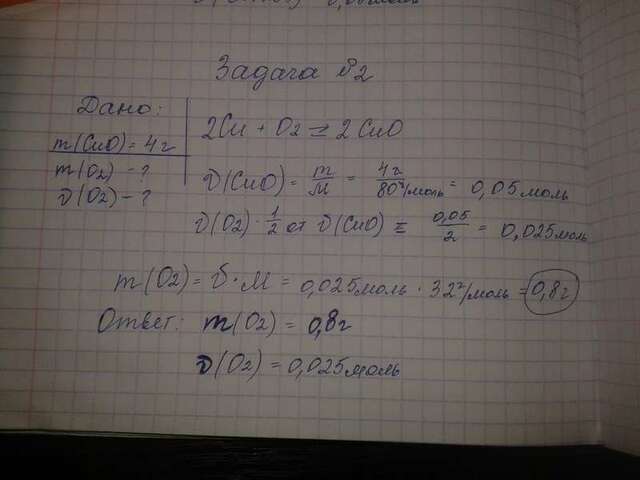 Задача №2
Дано:
m(CuO) = 4 г
m(O2) - ?
ν(O2) - ?
2Cu + O2 = 2CuO
ν(CuO) = m/M = 4 г/80 г/моль = 0,05 моль
ν(O2) · 1/2 от ν(CuO) = 0,05/2 = 0,025 моль
m(O2) = ν · M = 0,025 моль · 32 г/моль = 0,8 г
Ответ: m(O2) = 0,8 г
ν(O2) = 0,025 моль